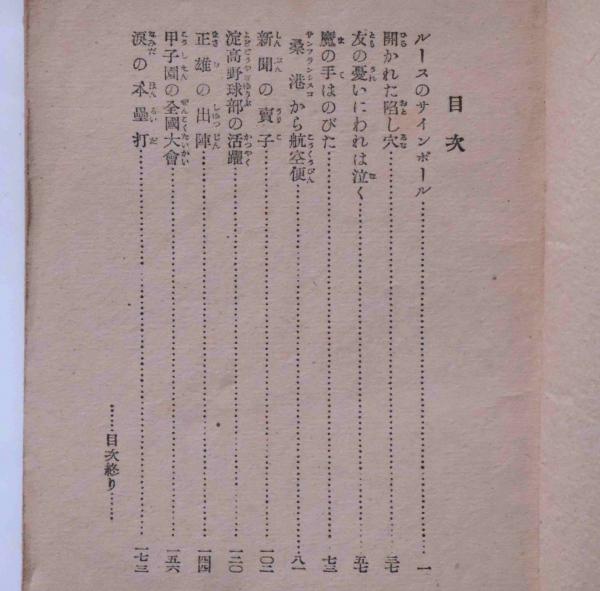 目次
ルースのサインボール……一
開かれた陷し穴……三七
友の憂いにわれは泣く……五七
魔の手はのびた……七三
桑港から航空便……八一
新聞の賣子……一〇二
淀高野球部の活躍……一二〇
正雄の出陣……一四四
甲子園の全國大會……一五六
涙の本壘打……一七三
……目次終り……